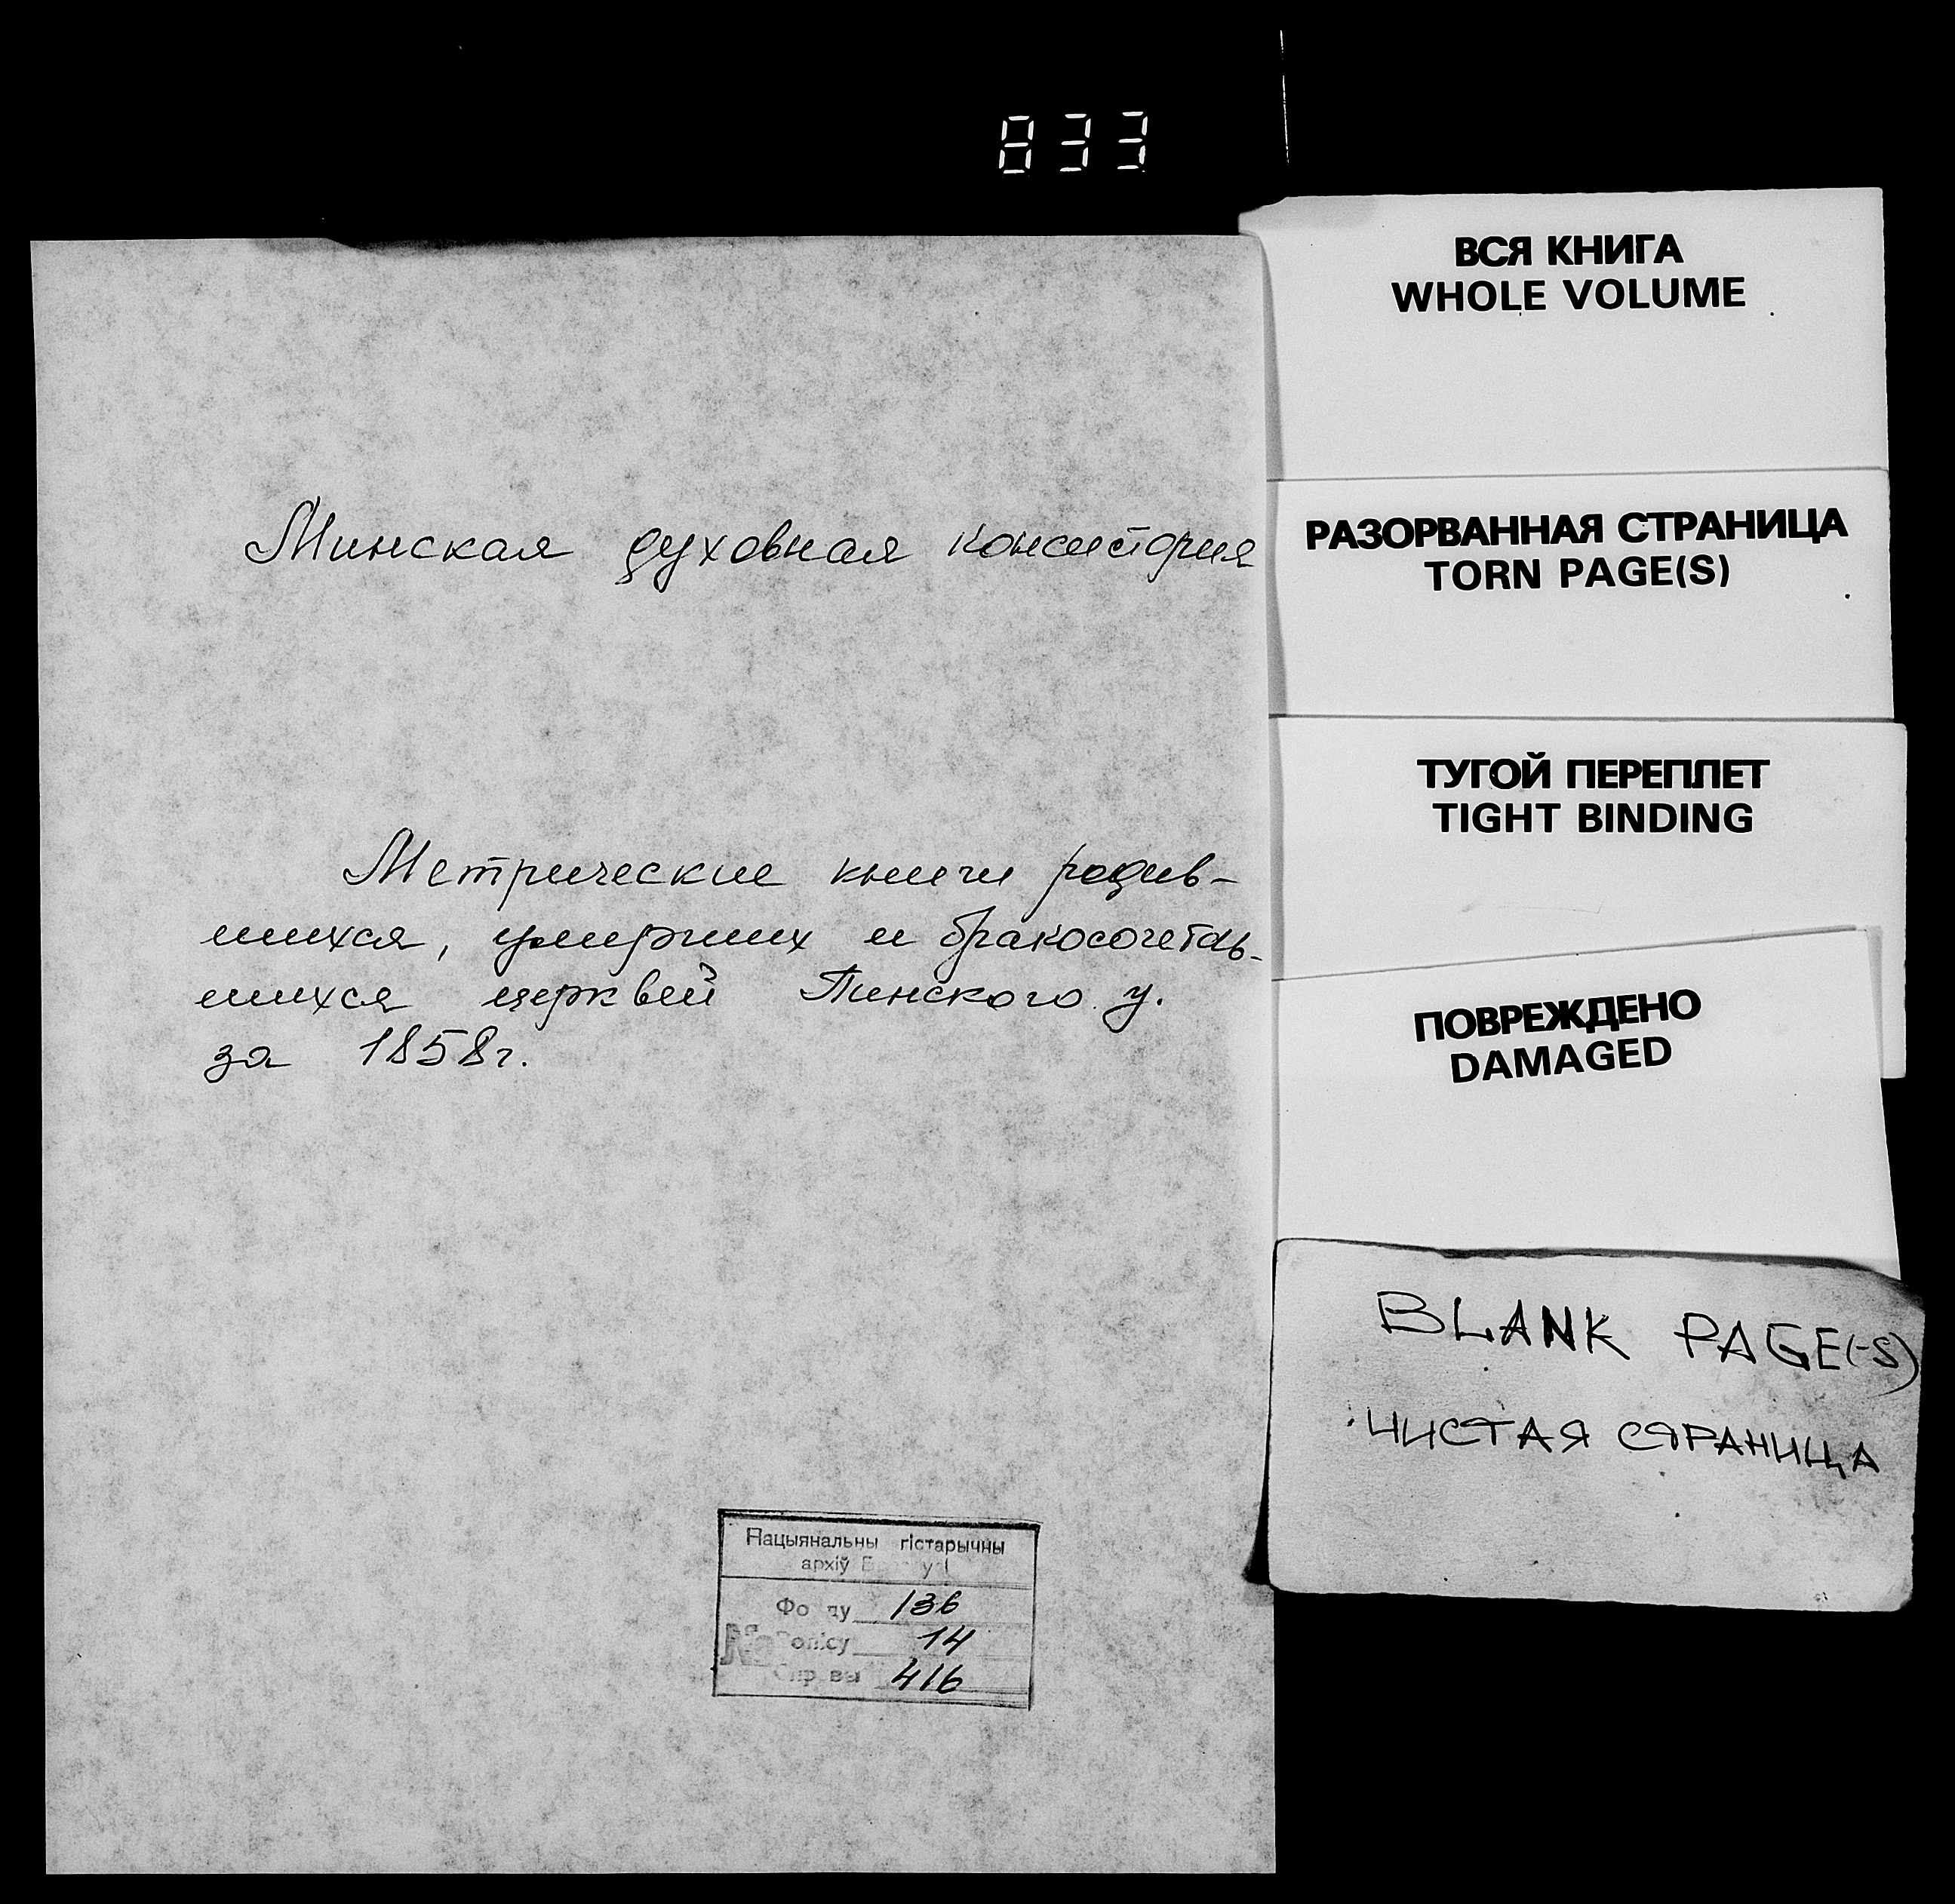 833
Минская духовная консистория
Метрические книги родив-
шихся, умерших и бракосочетав-
шихся церквей Пинского у.
за 1858г.
Нацыянальны гістарычны
архіў
Фо ду 136
№ Вопісу 14
Спр вы 416
ВСЯ КНИГА
WHOLE VOLUME
РАЗОРВАННАЯ СТРАНИЦА
TORN PAGE(S)
ТУГОЙ ПЕРЕПЛЕТ
TIGHT BINDING
ПОВРЕЖДЕНО
DAMAGED
BLANK PAGE(-S)
ЧИСТАЯ СТРАНИЦА